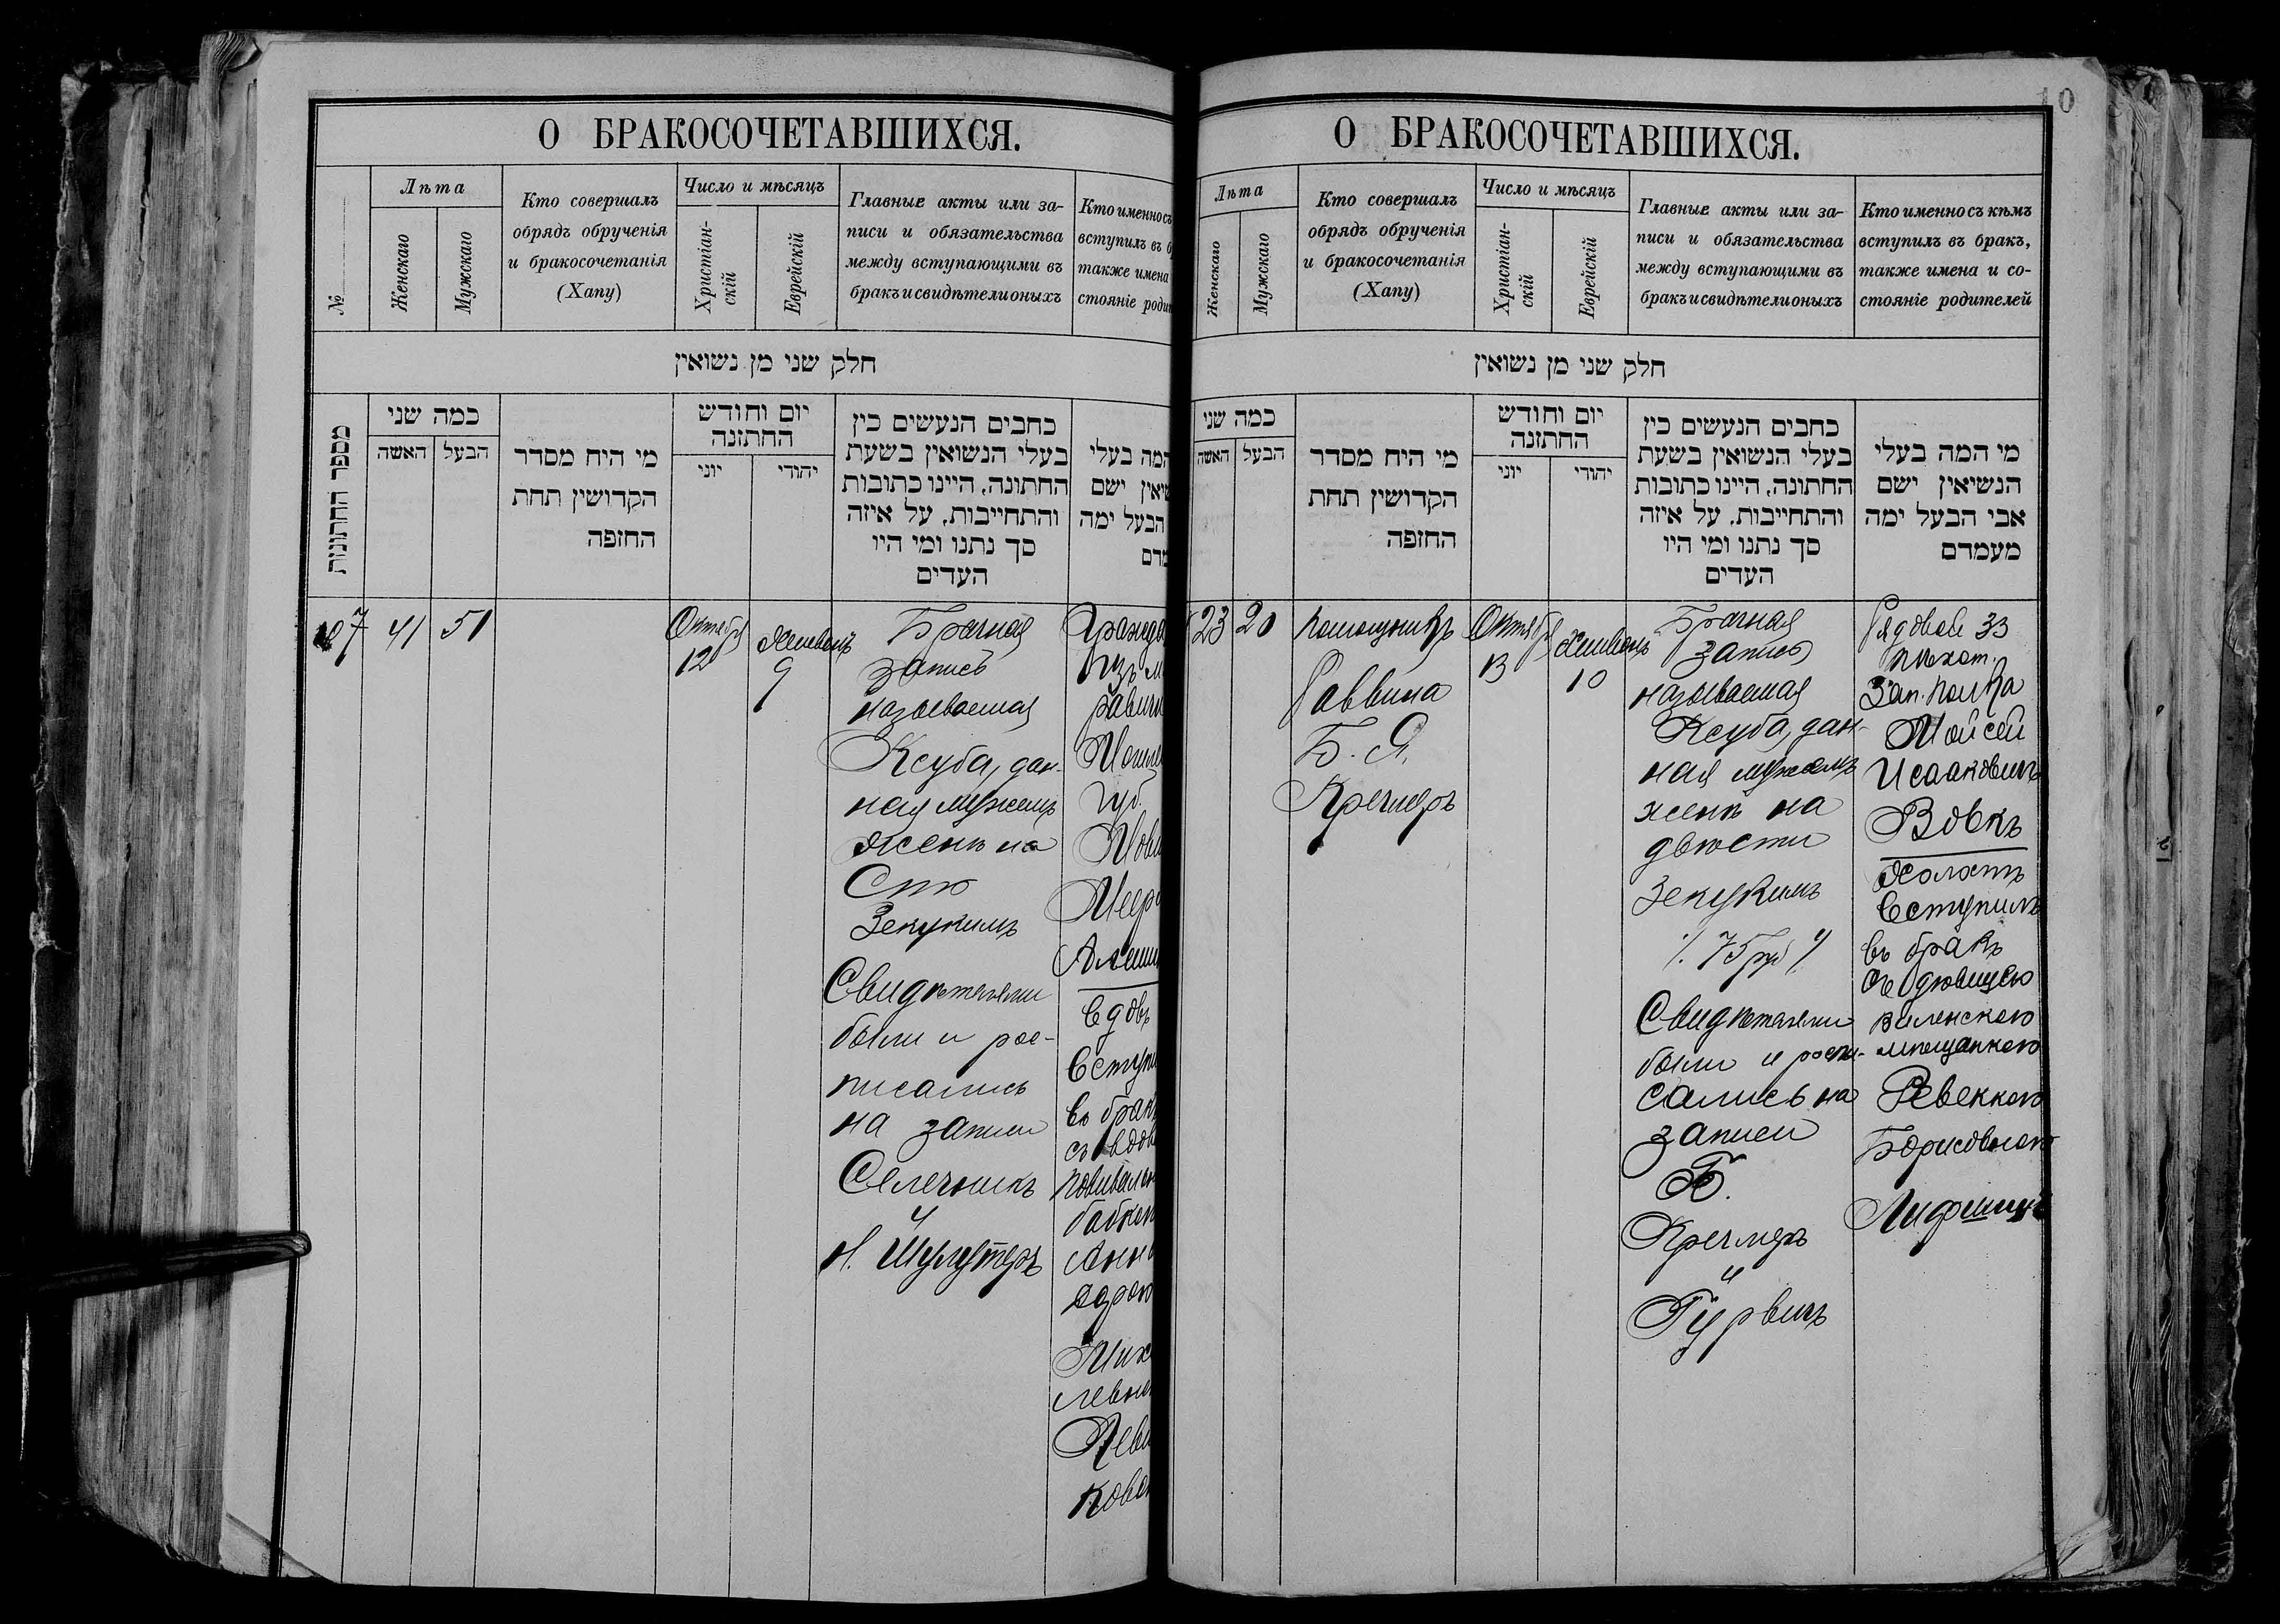 О БРАКОСОЧЕТАВШИХСЯ.
№
Лѣта
Женскаго
Мужскаго
Кто совершалъ
обрядъ обрученія
и бракосочетанія
(Хапу)
Число и мѣсяцъ
Христіан-
скій
Еврейскій
Главные акты или за-
писи и обязательства
между вступающими въ
бракъ и свидѣтели оныхъ
Кто именно съ
вступилъ въ б
также имена
стояніе роди
חלק שני מן נשואין
מספר החתונות
כמה שני
האשה
הבעל
מי היח מסדר
הקדושין תחת
החופה
יום וחודש
החתונה
יוני
יהודי
כתבים הנעשים בין
בעלי הנשואין בשעת
החתונה, היינו כתובות
והתחייבות, על איזה
סך נתנו ומי היו
העדים
המה בעלי
שיאין ישם
הבעל ימה
מדם
107
41
51
Октября
12
Хешванъ
9
Брачная
запись
называемая
Ксуба, дан-
ная мужемъ
женѣ на
Сто
Зекукимъ
Свидѣтелями
были и рос-
писались
на записи
Селечникъ
и
И. Шулутеръ
Гражда
изъ м
равич
Могил
губ.
Мовш
Меер
Алеши
вдовъ
вступи
въ брак
съ вдов
повиваль
бабкой
Анн
Азро
Мих
левно
Леви
Ково
10
О БРАКОСОЧЕТАВШИХСЯ.
Лѣта
Женскаго
Мужскаго
Кто совершалъ
обрядъ обрученія
и бракосочетанія
(Хапу)
Число и мѣсяцъ
Христіан-
скій
Еврейскій
Главные акты или за-
писи и обязательства
между вступающими въ
бракъ и свидѣтели оныхъ
Кто именно съ кѣмъ
вступилъ въ бракъ,
также имена и со-
стояніе родителей
חלק שני מן נשואין
כמה שני
האשה
הבעל
מי היח מסדר
הקדושין תחת
החופה
יום וחודש
החתונה
יוני
יהודי
כתבים הנעשים בין
בעלי הנשואין בשעת
החתונה, היינו כתובות
והתחייבות, על איזה
סך נתנו ומי היו
העדים
מי המה בעלי
הנשיאין ישם
אבי הבעל ימה
מעמדם
23
20
Помощникъ
Раввина
Б. Я.
Кречмеръ
Октября
13
Хешванъ
10
Брачная
запись
называемая
Ксуба, дан-
ная мужемъ
женѣ на
двѣсти
Зекукимъ
/. 75 руб /.
Свидѣтелями
были и роспи-
сались на
записи
Б.
Кречмеръ
и
Гурвичъ
Рядовой 33
пѣхот.
Зап. полка
Мойсей
Исааковичъ
Вовкъ
Холостъ
вступилъ
въ бракъ
съ дѣвицею
виленскою
мѣщанкою
Ревеккою
Борисовною
Лифшицъ